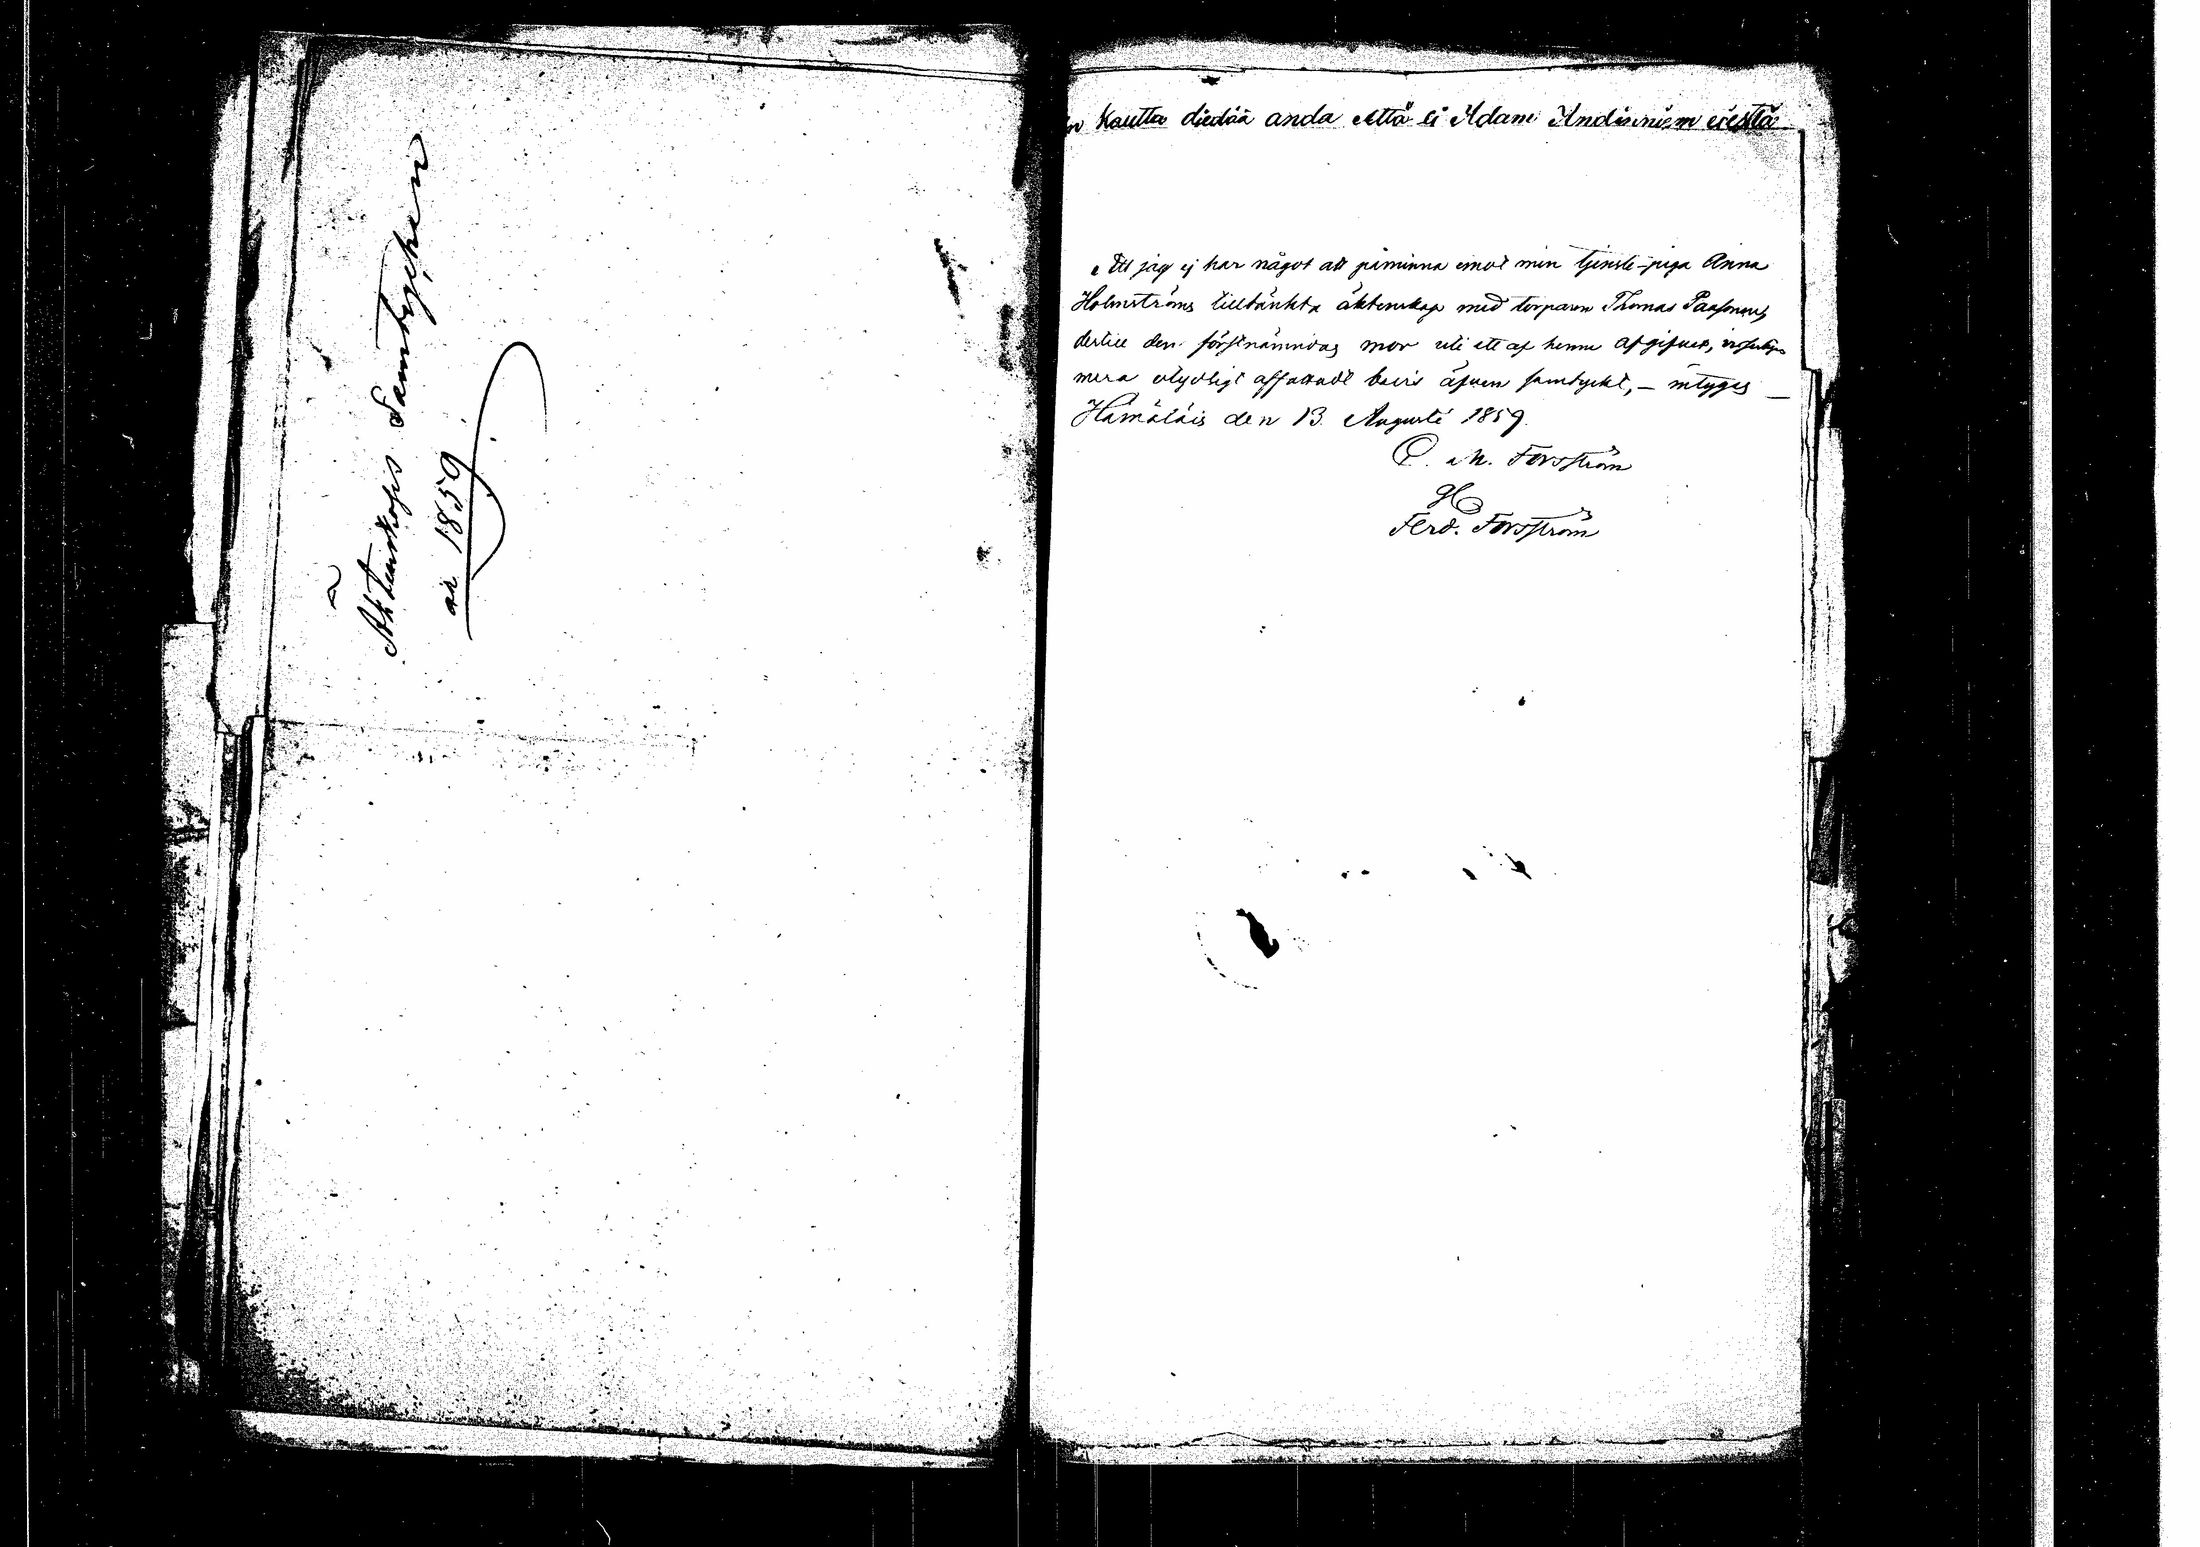 Äktenskaps Samtycken
år 1859
kautta diedää anda että ei Adam Andinniem eiestä
Att jag ej har något att påminna emot min tjenste-piga Anna
Holmströms tilltänkta äktenskap med torparen Thomas Paasonens
dertill den förstnämndas mor uti ett af henne afgifvet,
mera otydligt affattadt bevis äfven samtyckt, – intygas –
Hämäläis den 13. Augusti 1859.
C. M. Forsström
Ferd. Forsström